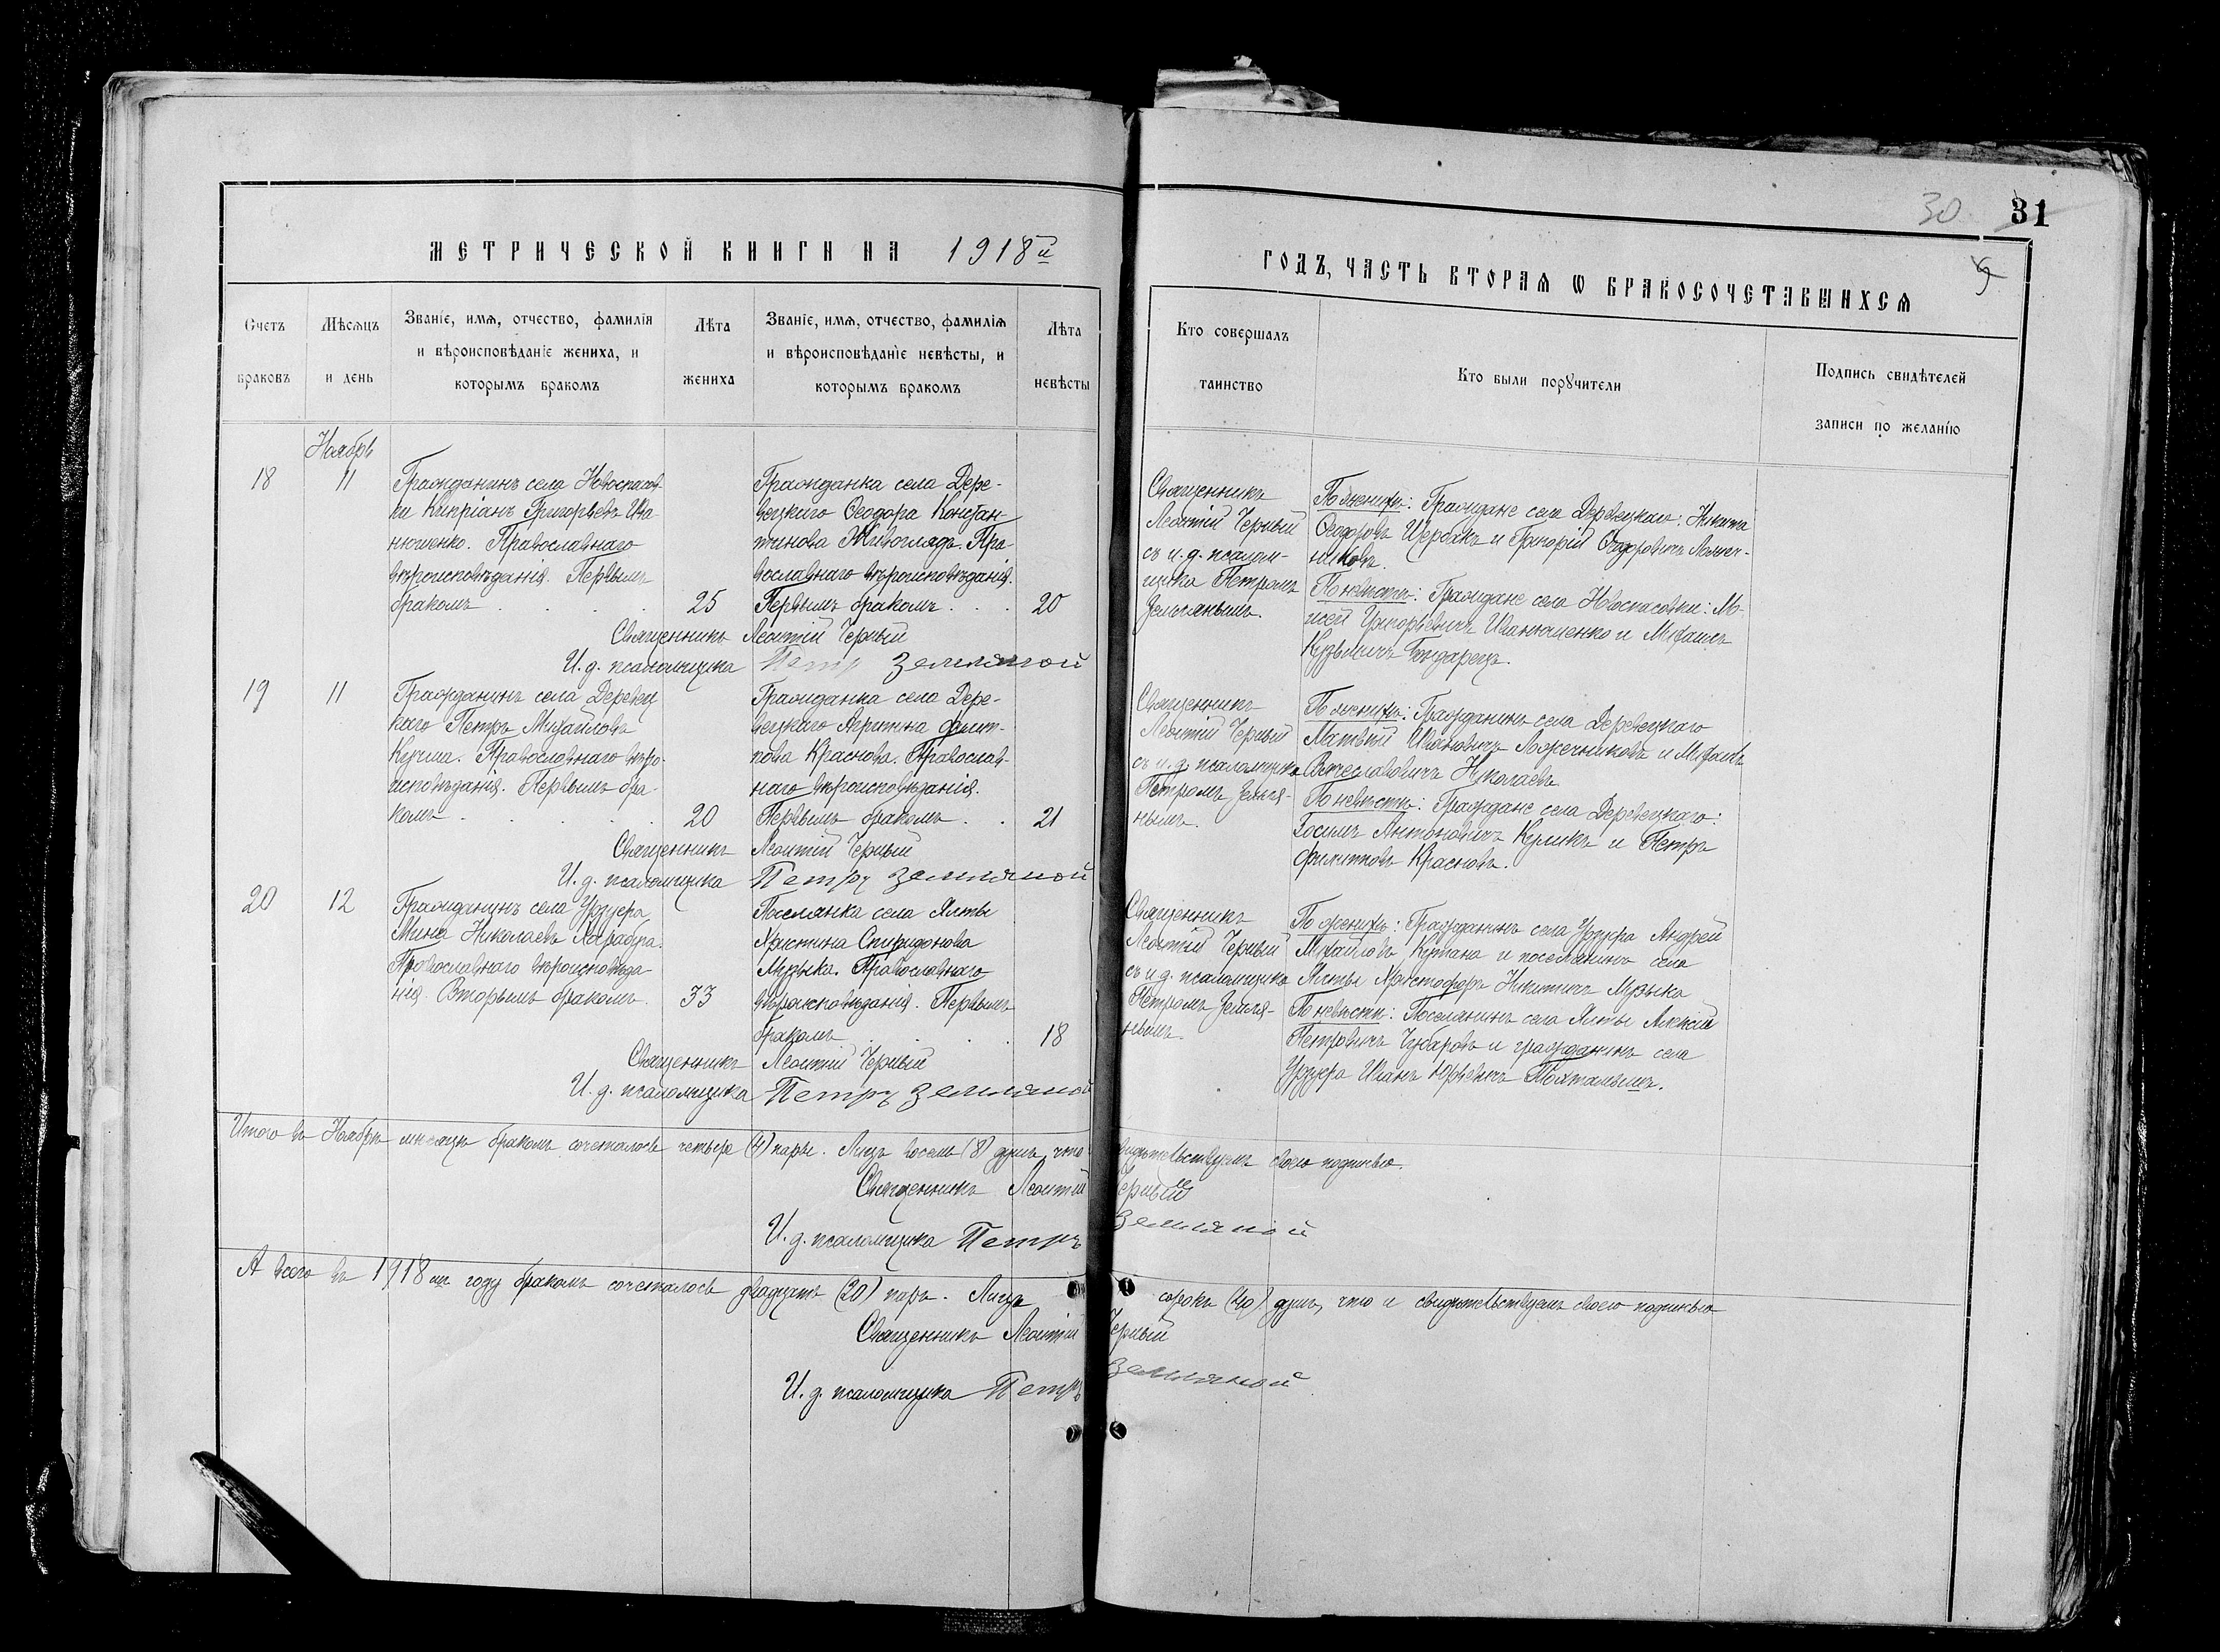 30 31
МЕТРИЧЕСКОЙ КНИГИ НА 1918й
ГОДЪ, ЧАСТЬ ВТОРАѦ Ѡ БРАКОСОЧЕТАВШИХСѦ
Счетъ браковъ
Мѣсѧцъ и день
Званіе, имѧ, отчество, фамиліѧ
и вѣроисповѣданіе жениха, и
которымъ бракомъ
Лѣта жениха
Званіе, имѧ, отчество, фамиліѧ
и вѣроисповѣданіе невѣсты, и
которымъ бракомъ
Лѣта невѣсты
Кто совершалъ
таинство
Кто были порꙋчители
Подпись свидѣтелей
записи по желанію
Ноябрь
18 11
Гражданинъ села Новоспасов-
ки Кипріанъ Григорьевъ Ива-
нющенко. Православнаго
вѣроисповѣданія. Первымъ
бракомъ 25
Гражданка села Дере-
вецкаго Ѳеодора Констан-
тинова Живоглядъ. Пра-
вославнаго вѣроисповѣданія.
Первымъ бракомъ 20
Священникъ Леонтій Черный
И. д. псаломщика Петръ Земляной
Священникъ
Леонтій Черный
съ и. д. псалом-
щика Петромъ
Землянымъ.
По женихѣ: Граждане села Деревецкаго: Никита
Ѳеодоровъ Щербакъ и Григорій Ѳеодоровичъ
По невѣстѣ: Граждане села Новоспасовки:
Григорьевичъ Иванющенко и Михаилъ
Кузьмичъ Бондарецъ.
19 11
Гражданинъ села Деревец
каго Петръ Михайловъ
Кучма. Православнаго вѣро-
исповѣданія. Первымъ бра-
комъ 20
Гражданка села Дере-
вецкаго Филип-
пова Краснова. Православ-
наго вѣроисповѣданія.
Первымъ бракомъ 21
Священникъ Леонтій Черный
И. д. псаломщика Петръ Земляной
Священникъ
Леонтій Черный
съ и. д. псаломщика
Петромъ Земля-
нымъ.
По женихѣ: Гражданинъ села Деревецкаго
Матвѣй Ивановичъ Ложечниковъ и Михаилъ
Вячеславовичъ Николаевъ
По невѣстѣ: Граждане села Деревецкаго:
Антоновичъ Куликъ и Петръ
Филипповъ Красновъ.
20 12
Гражданинъ села Урзуфа
Мина Николаевъ Харабуга.
Православнаго вѣроисповѣда
нія. Вторымъ бракомъ. 33
Поселянка села Ялты
Христина Спиридонова
Музыка. Православнаго
вѣроисповѣданія. Первымъ
бракомъ 18
Священникъ Леонтій Черный
И. д. псаломщика Петръ Земляной
Священникъ
Леонтій Черный
съ и д. псаломщика
Петромъ Земля-
нымъ.
По женихѣ: Гражданинъ села Урзуфа Андрей
Михайловъ и поселянинъ села
Ялты Христофоръ Никитичъ Музыка
По невѣсты: Поселянинъ села Ялты Алексій
Петровичъ Чубаровъ и гражданинъ села
Урзуфа Иванъ Юрьевичъ Тохтамышъ.
Итого въ Ноябрѣ мѣсяцѣ бракомъ сочеталось четыре (4) пары. Лицъ восемь (8) душъ, что свидѣтельствуемъ своею подписью.
Священникъ Леонтій Черный
И. д. псаломщика Петръ Земляной
А всего въ 1918 мъ году бракомъ сочеталось двадцать (20) паръ. Лицъ сорокъ (40) душъ, что и свидѣтельствуемъ своею подписью
Священникъ Леонтій Черный
И. д. псаломщика Петръ Земляной